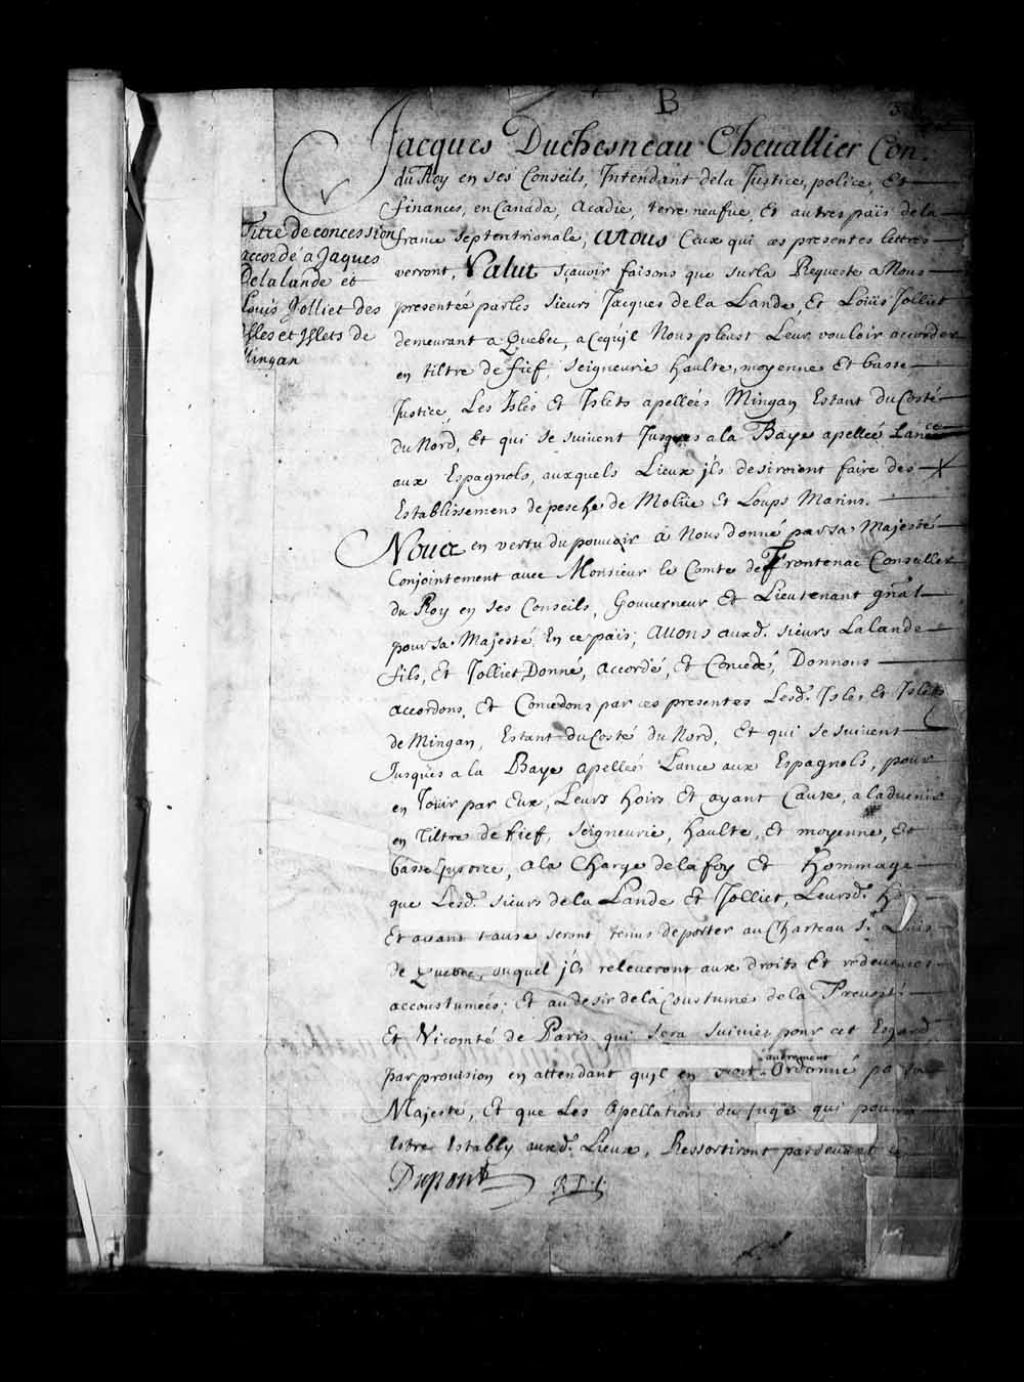 B
Jacques Duchesneau Cheuallier Con.
du Roy en ses Conseils, Intendant dela Justice, police, Et
finances, en Canada, Acadie, terre neufue, Et autres païs dela
france septentrionale, A tous Ceux qui ces presentes lettres
verront, Salut sçauoir faisons que surla Requeste a Nous
presentée parles sieurs Jacques de la Lande, Et Loüis Jolliet
demeurant a Quebec, a Cequ'jl Nous pleust Leur vouloir accorder
en tiltre de fief, seigneurie haulte, moyenne Et basse
Justice, Les Isles Et Islets apellées Mingan Estant du Costé
du Nord, Et qui se suivent Jusques a la Baye apellée Lance
aux Espagnols, auxquels Lieux jls desiroient faire des
Establissemens de pesche de Moluë Et Loups Marins.
Nous en vertu du pouuoir à Nous donné par sa Majesté
Conjointement auec Monsieur le Comte de Frontenac Conseiller
du Roy en ses Conseils, Gouuerneur Et Lieutenant gñal
pour sa Majesté En ce païs, Auons auxd. sieurs Lalande
fils, Et Jolliet Donné, accordé, Et Concedé, Donnons
accordons, Et Concedons par ces presentes Lesd. Isles Et Islets
de Mingan, Estant du Costé du Nord, Et qui se suivent
Jusques a la Baye apellée Lance aux Espagnols, pour
en Jouir par Eux, Leurs hoirs Et ayant Cause, a laduenir
en tiltre de fief, seigneurie, haulte, Et moyenne, Et
basse Justice, a la Charge de la foy Et Hommage
que Lesd. sieurs de la Lande Et Jolliet, Leursd.
Et ayans cause seront tenus de porter au Chasteau St. Louis
de Quebec, duquel jls releueront aux droits Et redeuances
accoustumées, Et au desir de la Coustume de la Preuosté
Et Vicomté de Paris qui sera suiuie pour cet Esgard
autrement
par prouision en attendant qu'jl en soit Ordonné par sa
Majesté, Et que Les Apellations du Juge qui pourra
Estre Estably auxd. Lieux, Ressortiront pardeuant
Dupont
Titre de concession
accordé a Jaques
Delalande et
Louis Jolliet des
Isles et Islets de
Mingan